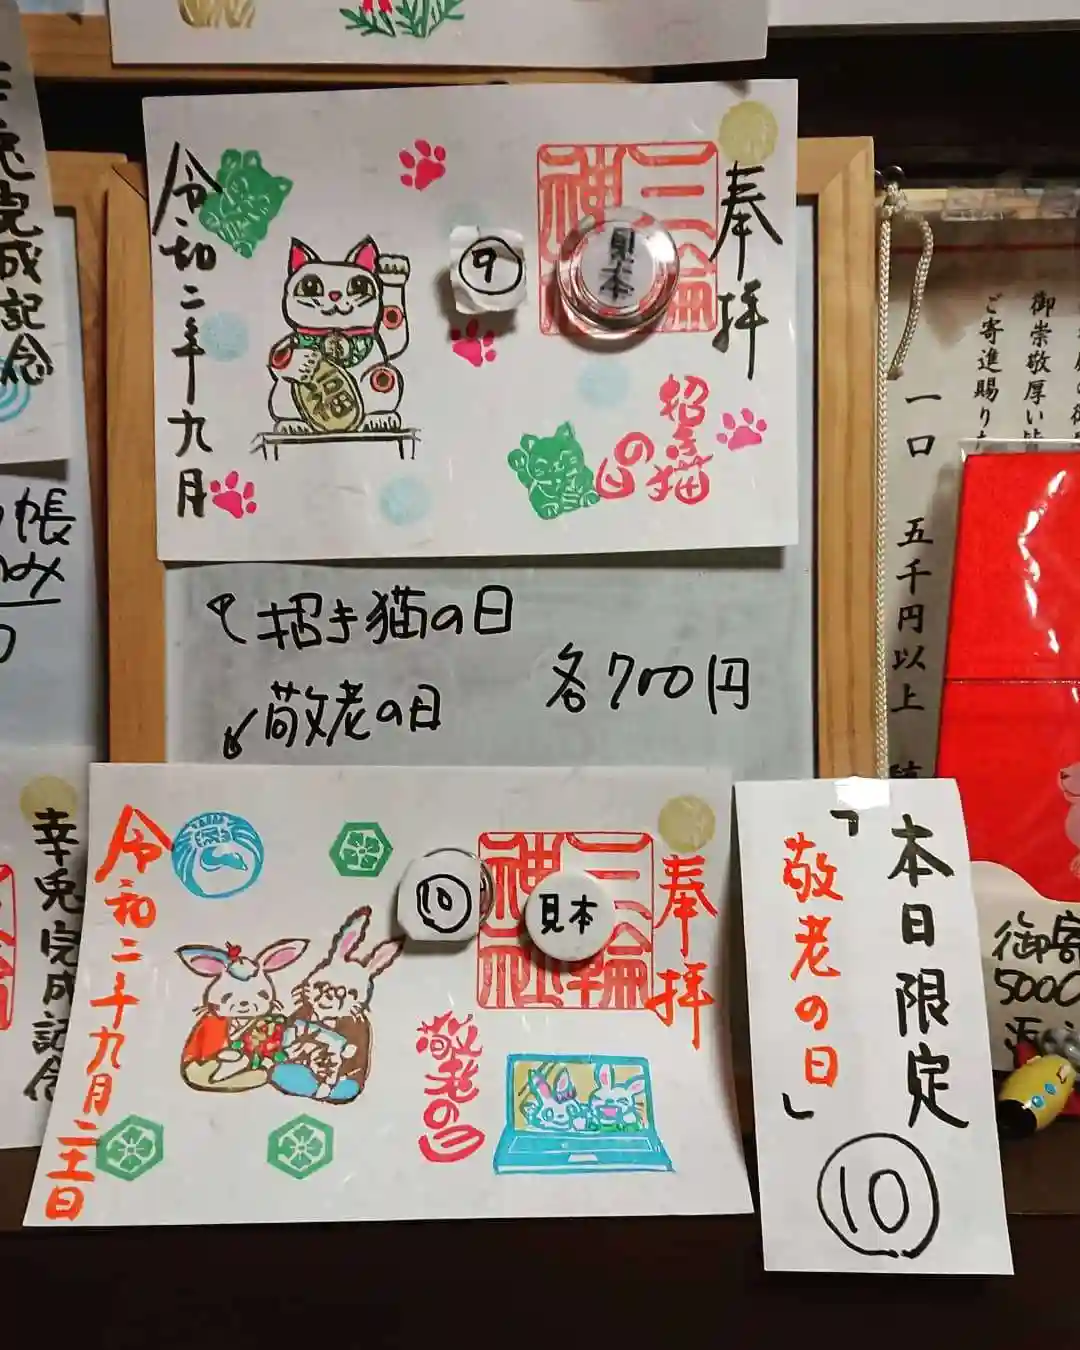 奉拝
三輪
神社
見本
⑨
福
招き猫
の日
令和二年九月
招き猫の日
敬老の日
各700円
奉拝
三輪
神社
見本
⑩
敬老の日
令和二年九月二十一日
本日限定
「敬老の日」
⑩
幸兎完成記念
幸兎完成記念
帳
のみ
御崇敬厚い皆
ご寄進賜り
一口 五千円以上
御寄
5000